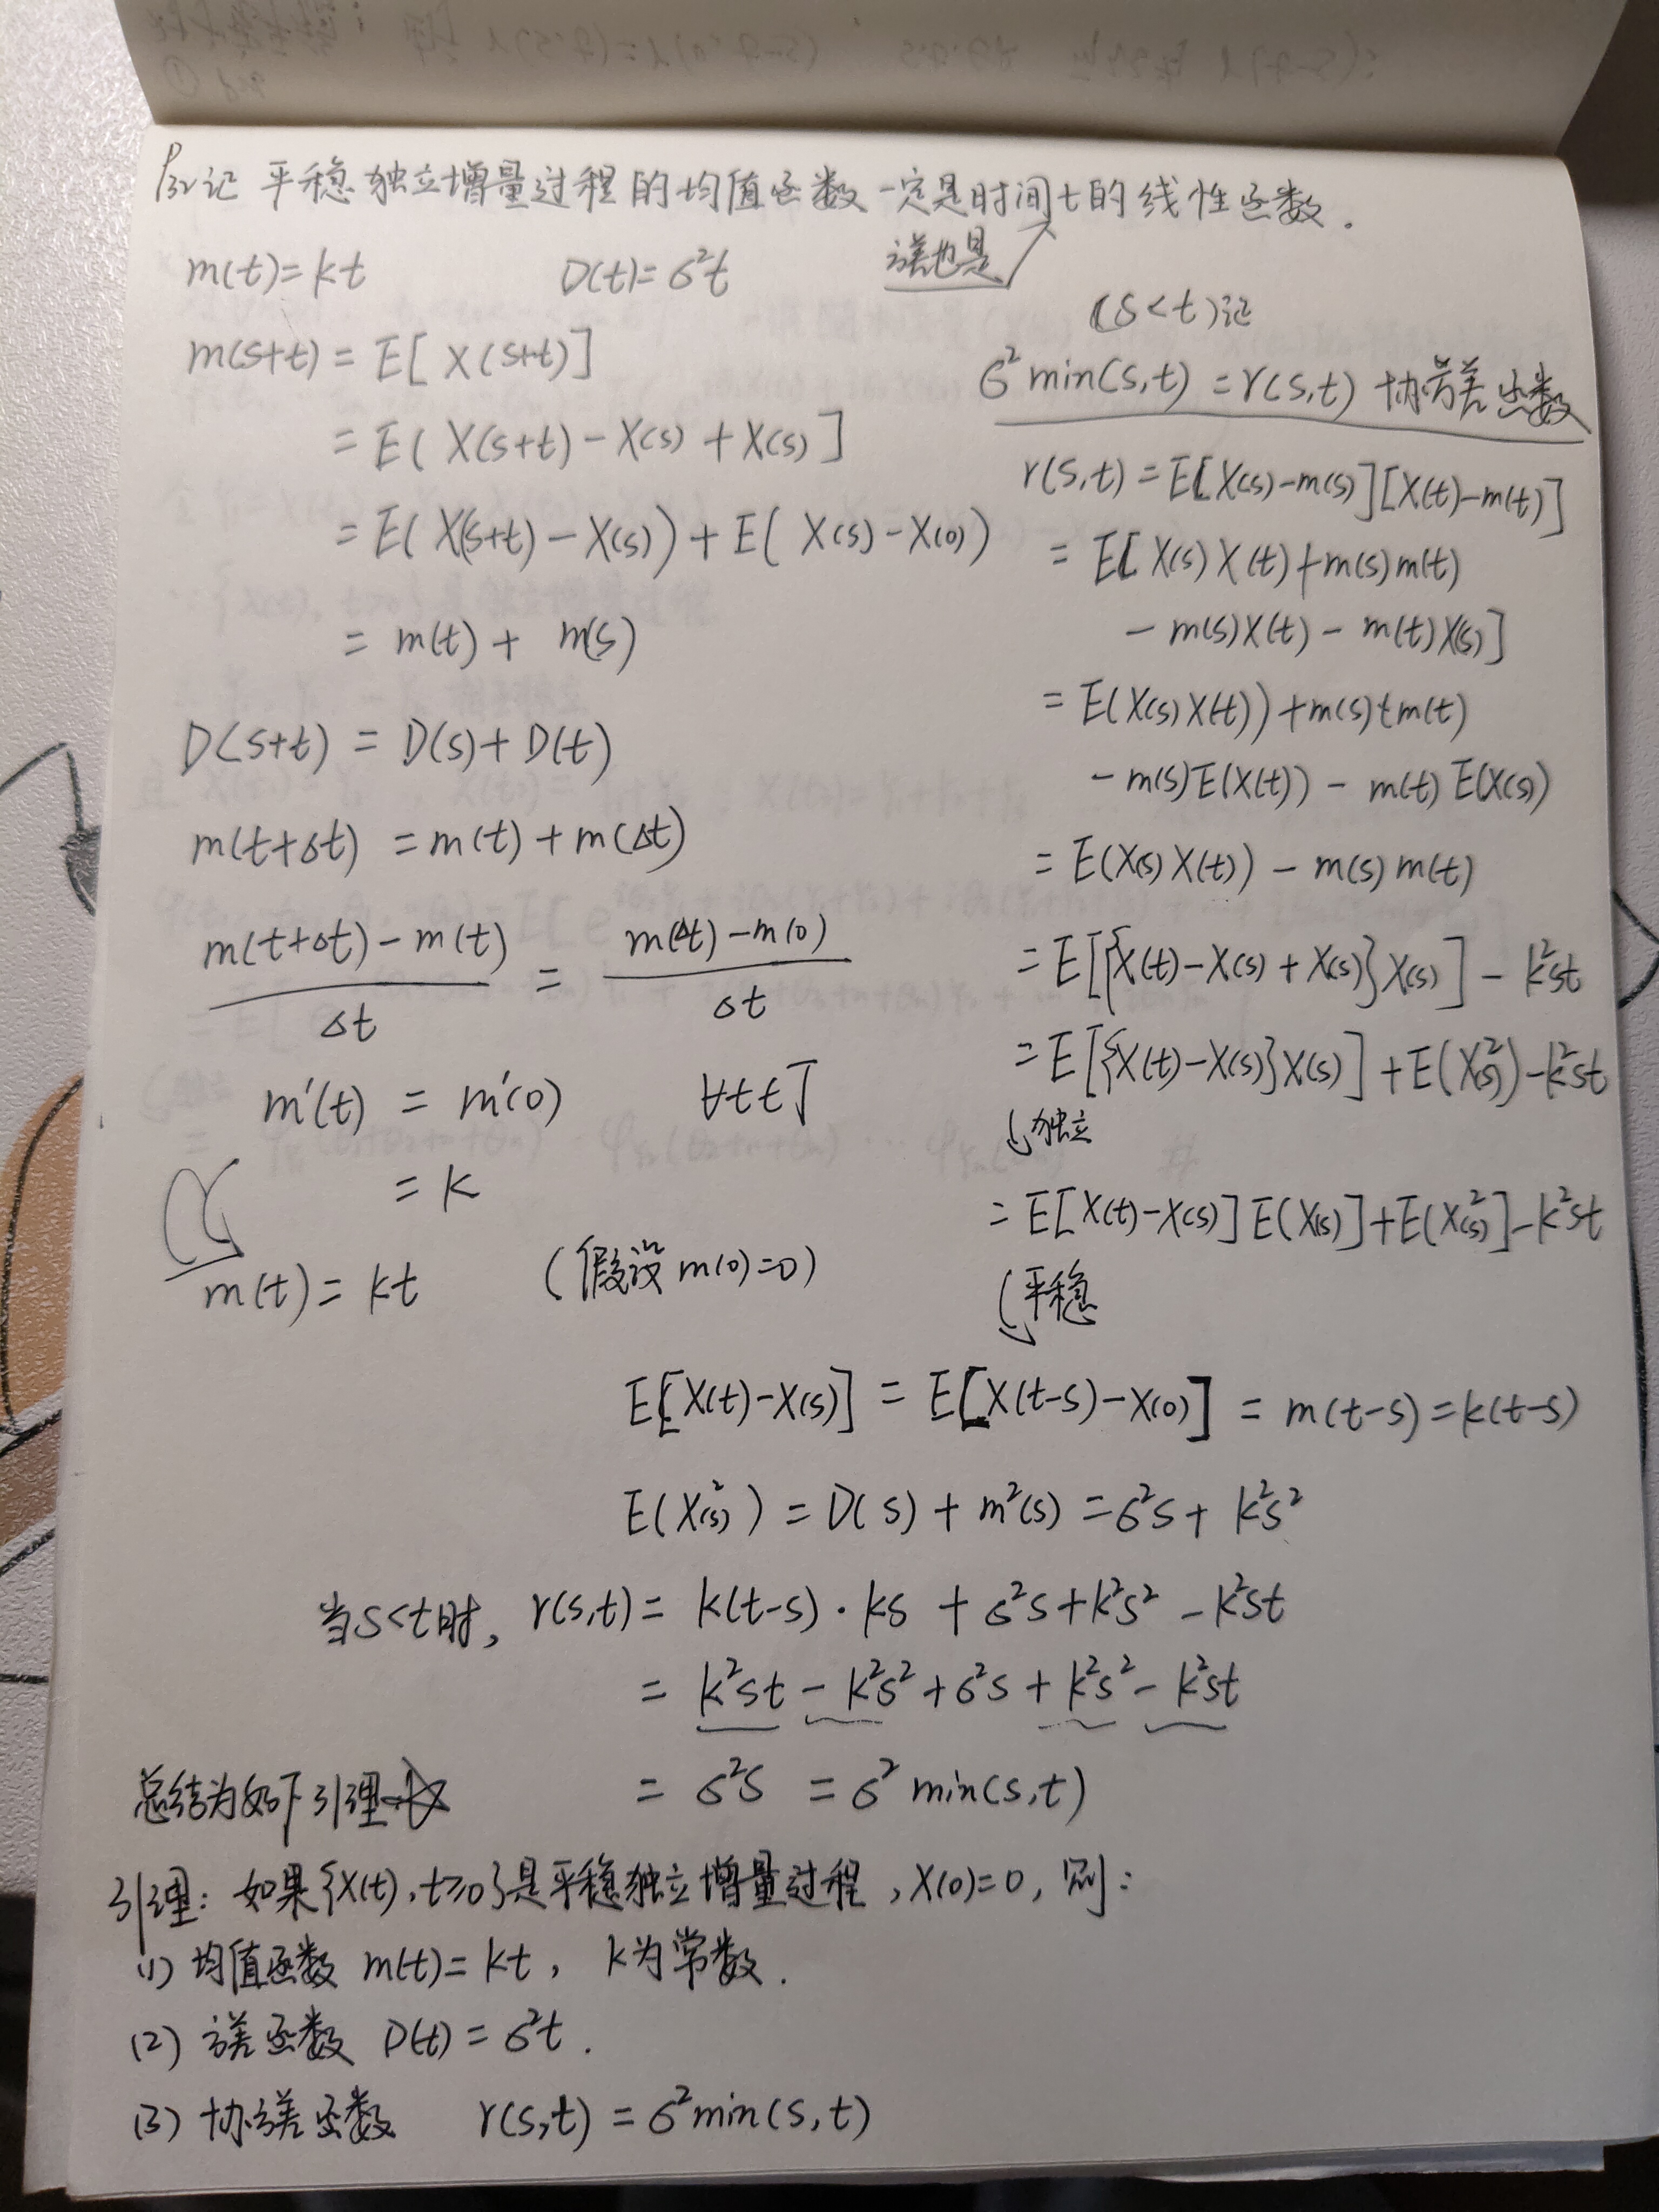 P32记 平稳独立增量过程的均值函数一定是时间t的线性函数.
m(t)=kt D(t)=σ²t 方差也是
m(s+t) = E[X(s+t)]
= E(X(s+t)-X(s)+X(s)]
= E(X(s+t)-X(s))+E(X(s)-X(0))
= m(t)+m(s)
D(s+t) = D(s)+D(t)
m(t+Δt) = m(t)+m(Δt)
\frac{m(t+Δt)-m(t)}{Δt} = \frac{m(Δt)-m(0)}{Δt}
m'(t) = m'(0) ∀t∈T
= k
m(t)=kt (假设m(0)=0)
(s<t)记
σ²min(s,t)=r(s,t) 协方差函数
r(s,t)=E[X(s)-m(s)][X(t)-m(t)]
= E[X(s)X(t)+m(s)m(t)
-m(s)X(t)-m(t)X(s)]
= E(X(s)X(t))+m(s)tm(t)
-m(s)E(X(t))-m(t)E(X(s))
= E(X(s)X(t))-m(s)m(t)
= E[{X(t)-X(s)+X(s)}X(s)]-k²st
= E[{X(t)-X(s)}X(s)]+E(X²(s))-k²st
独立
= E[X(t)-X(s)]E(X(s)]+E(X²(s)]-k²st
平稳
E[X(t)-X(s)] = E[X(t-s)-X(0)] = m(t-s)=k(t-s)
E(X²(s)) = D(s)+m²(s) = σ²s+k²s²
当s<t时, r(s,t) = k(t-s)·ks+σ²s+k²s²-k²st
= k²st-k²s²+σ²s+k²s²-k²st
= σ²s = σ² min(s,t)
总结为如下引理
引理: 如果{X(t),t≥0}是平稳独立增量过程,X(0)=0, 则:
(1) 均值函数 m(t)=kt, k为常数.
(2) 方差函数 D(t)=σ²t.
(3) 协方差函数 r(s,t)=σ²min(s,t)